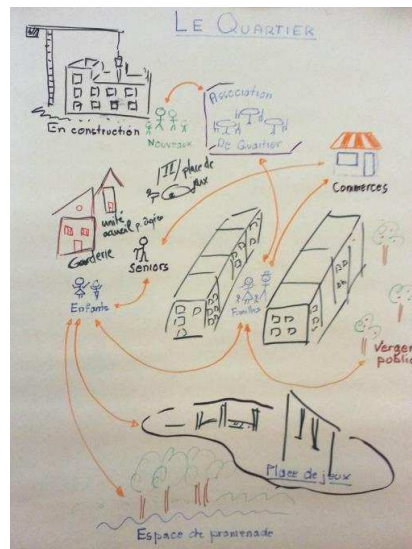 LE QUARTIER
En construction
Nouveaux
Association
De Quartier
place de
jeux
Commerces
unité
accueil
Garderie
Seniors
Enfants
Familles
Verger
public
Place de jeux
Espace de promenade